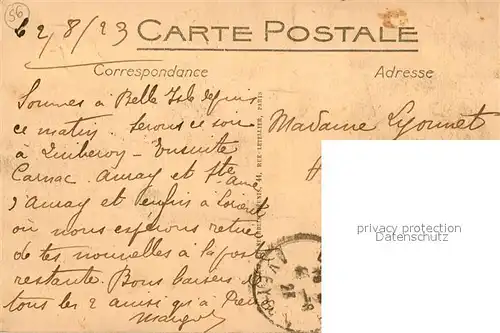 56
Le 2/8/23
CARTE POSTALE
Correspondance
Adresse
Sommes à Belle Isle depuis
ce matin. Serons ce soir
à Quiberon - Ensuite
Carnac. Auray et Ste
Anne
d'Auray et enfin à Lorient
où nous espérons retirer
de tes nouvelles à la poste
restante. Bons baisers de
tous les 2 ainsi qu'à
Madame Lyonnet
privacy protection
Datenschutz